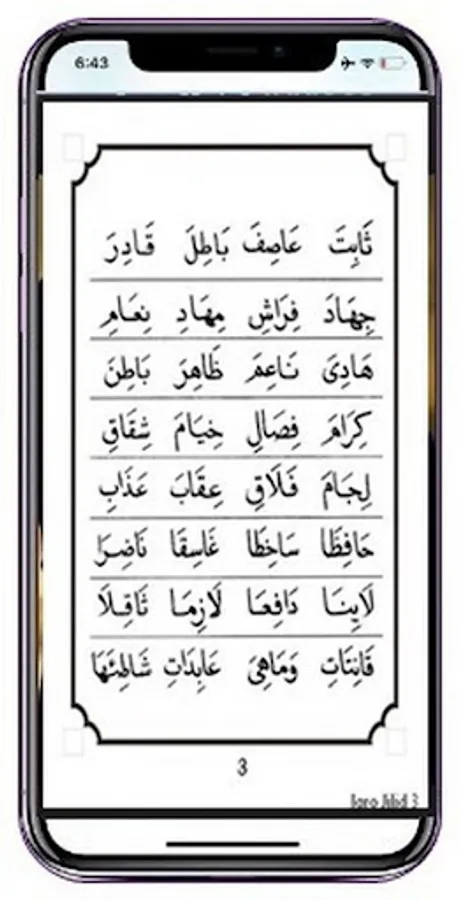 6:43
ثَابِتَ عَاصِفَ بَاطِلَ قَادِرَ
جِهَادَ فِرَاشِ مِهَادِ نِعَامِ
هَادِىَ نَاعِمَ ظَاهِرَ بَاطِنَ
كِرَامَ فِصَالِ خِيَامَ شِقَاقِ
لِجَامَ فَلَاقِ عِقَابَ عَذَابِ
حَافِظَا سَاخِطَا غَاسِقَا نَاضِرَا
لَابِنَا دَافِعَا لَازِمَا ثَاقِلَا
قَانِتَاتِ وَمَاهِىَ عَابِدَاتِ شَاطِئَهَا
3
Iqro Jilid 3